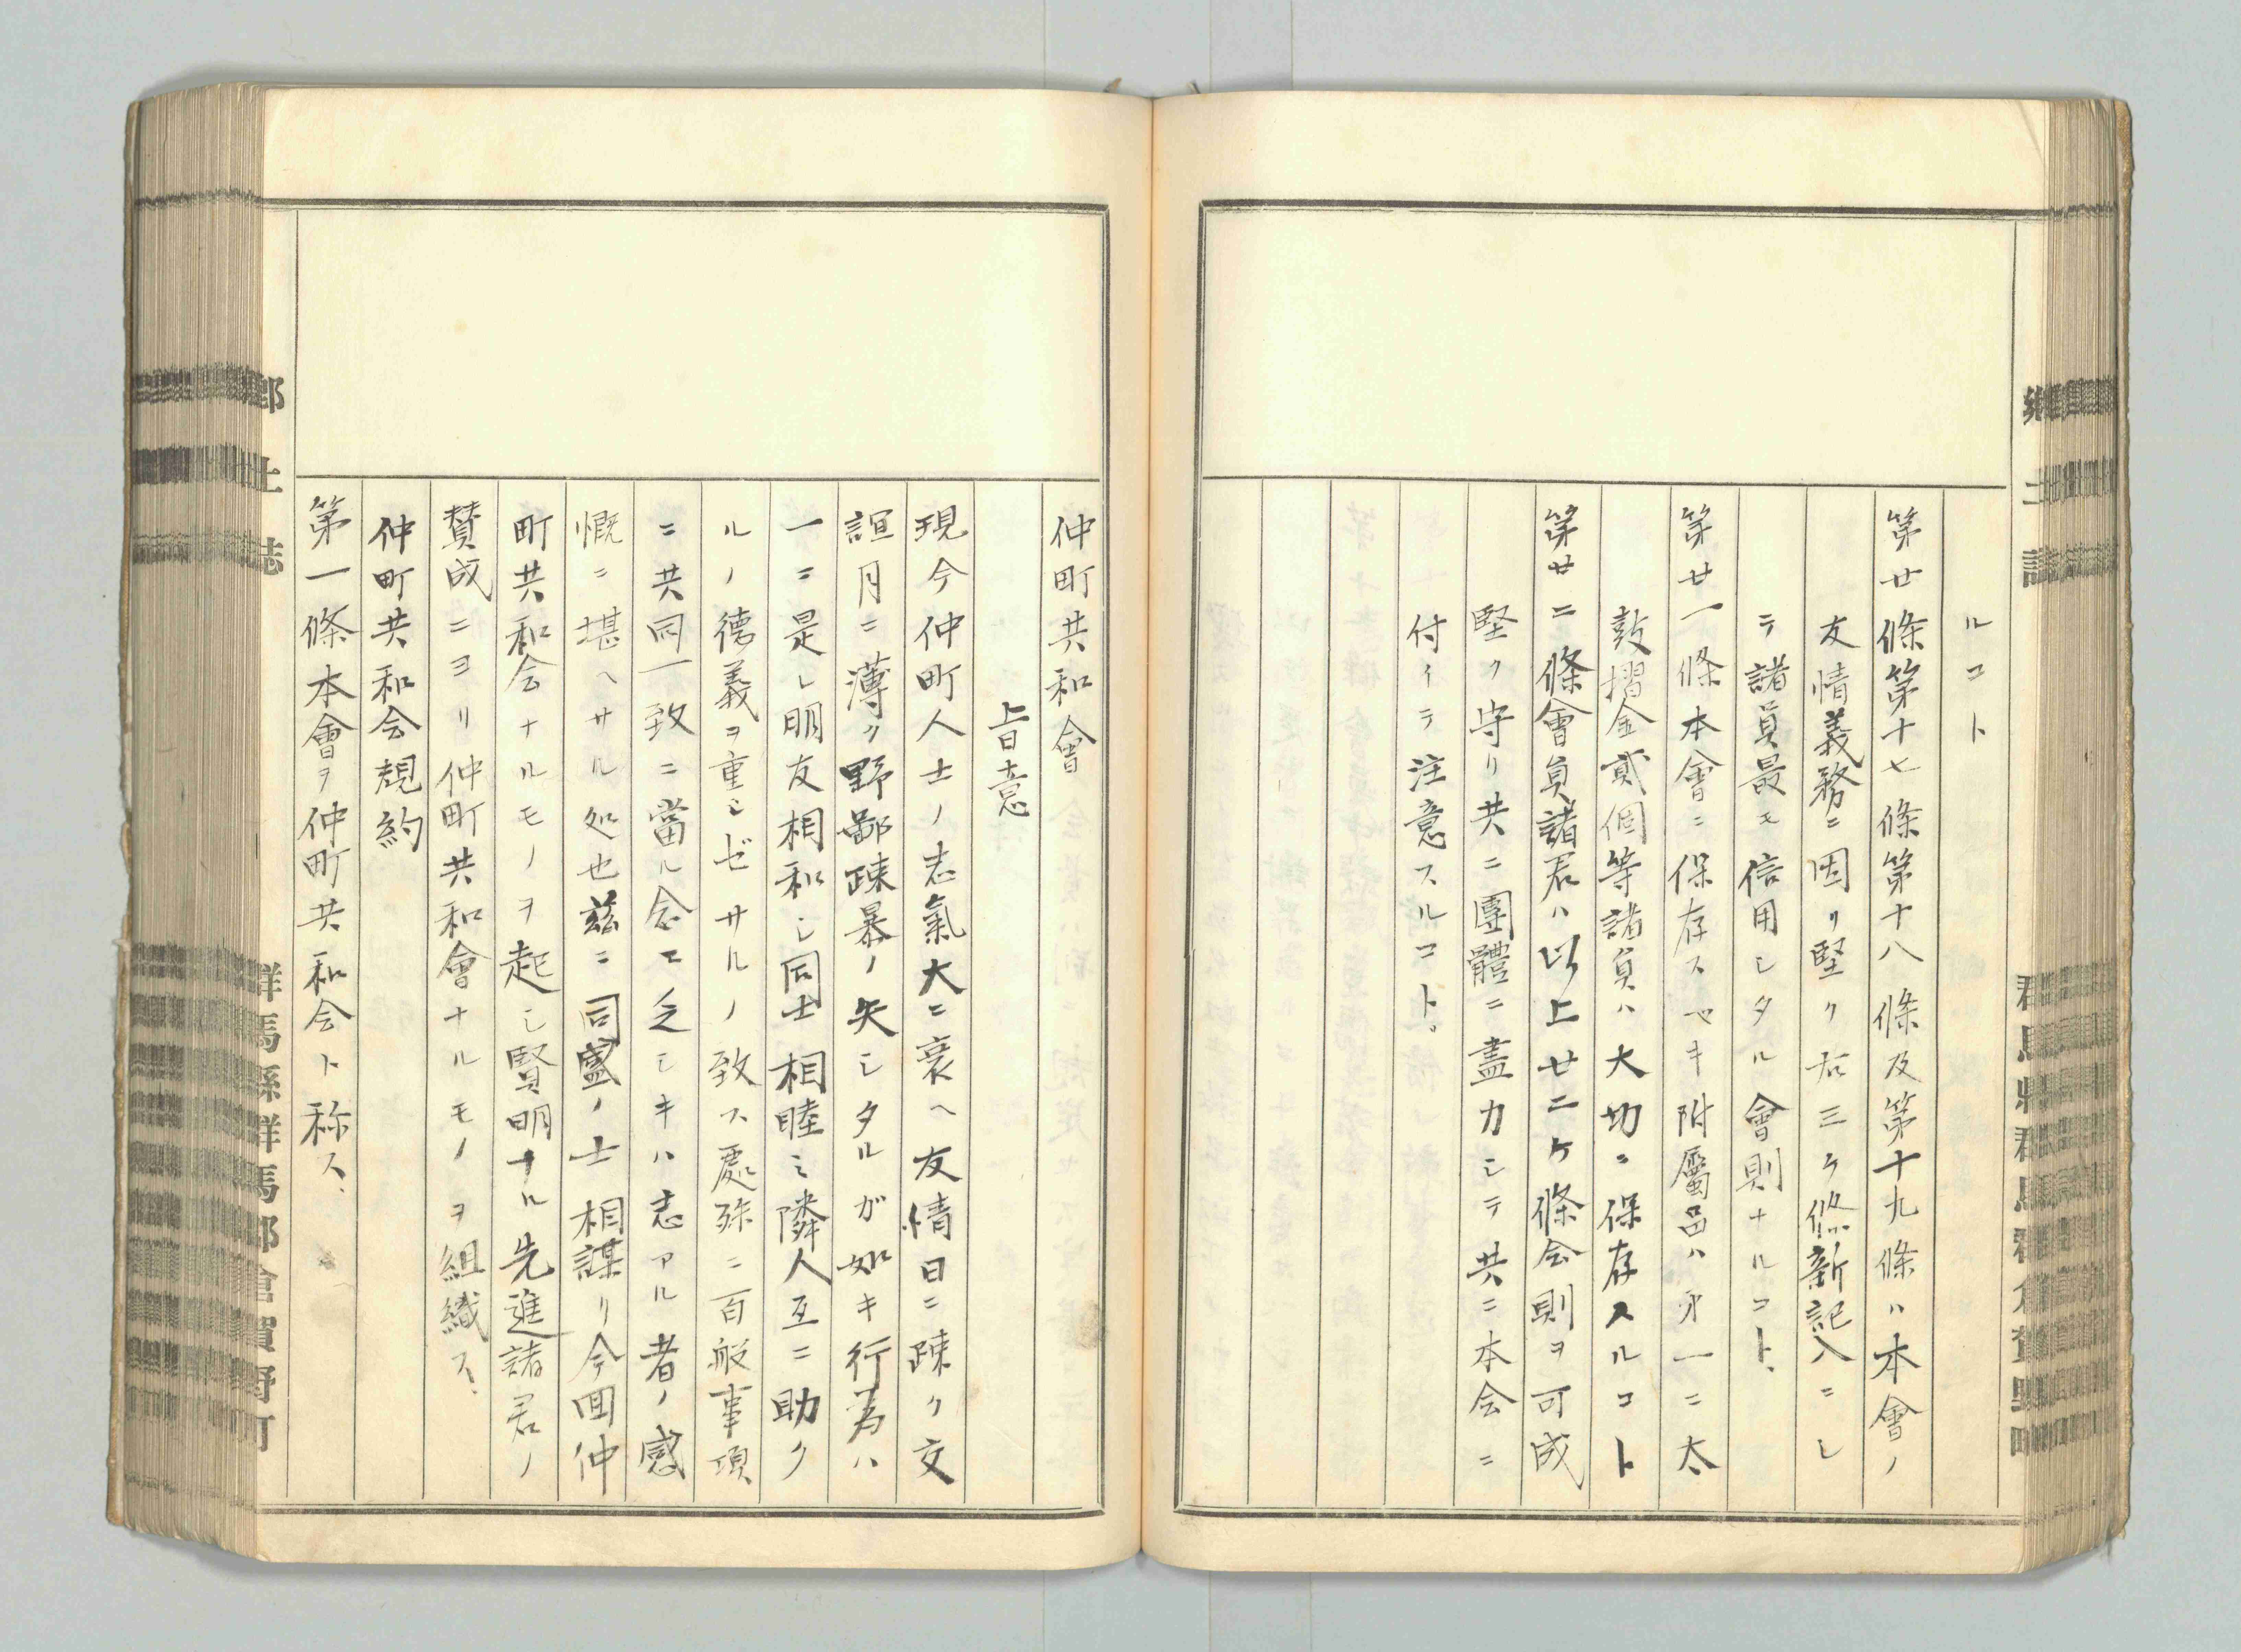 ルコト
第廿條第十七條第十八條及第十九條ハ本會ノ
友情義務ニ因リ堅ク右三ケ條新記入ニシ
テ諸員最モ信用シタル會則ナルコト、
第廿一條本會ニ保存スヘキ附屬品ハ第一ニ太
鼓摺金貳個等諸員ハ大切ニ保存スルコト
第廿二條會員諸君ハ以上廿二ケ條会則ヲ可成
堅ク守リ共ニ團體ニ盡力シテ共ニ本会ニ
付イテ注意スルコト。
仲町共和會
旨意
現今仲町人士ノ志氣大ニ衰ヘ友情日ニ疎ク交
誼月ニ薄ク野鄙疎暴ノ失シタルガ如キ行為ハ
一ニ是レ朋友相和シ同士相睦ミ隣人互ニ助ク
ルノ德義ヲ重ンゼサルノ致ス處殊ニ百般事項
ニ共同一致ニ當ル念エ乏シキハ志アル者ノ感
慨ニ堪ヘサル処也茲ニ同盛ノ士相謀リ今回仲
町共和会ナルモノヲ起シ賢明ナル先進諸君ノ
賛成ニヨリ仲町共和會ナルモノヲ組織ス、
仲町共和会規約
第一條本會ヲ仲町共和会ト称ス、
郷土誌
群馬縣群馬郡倉賀野町